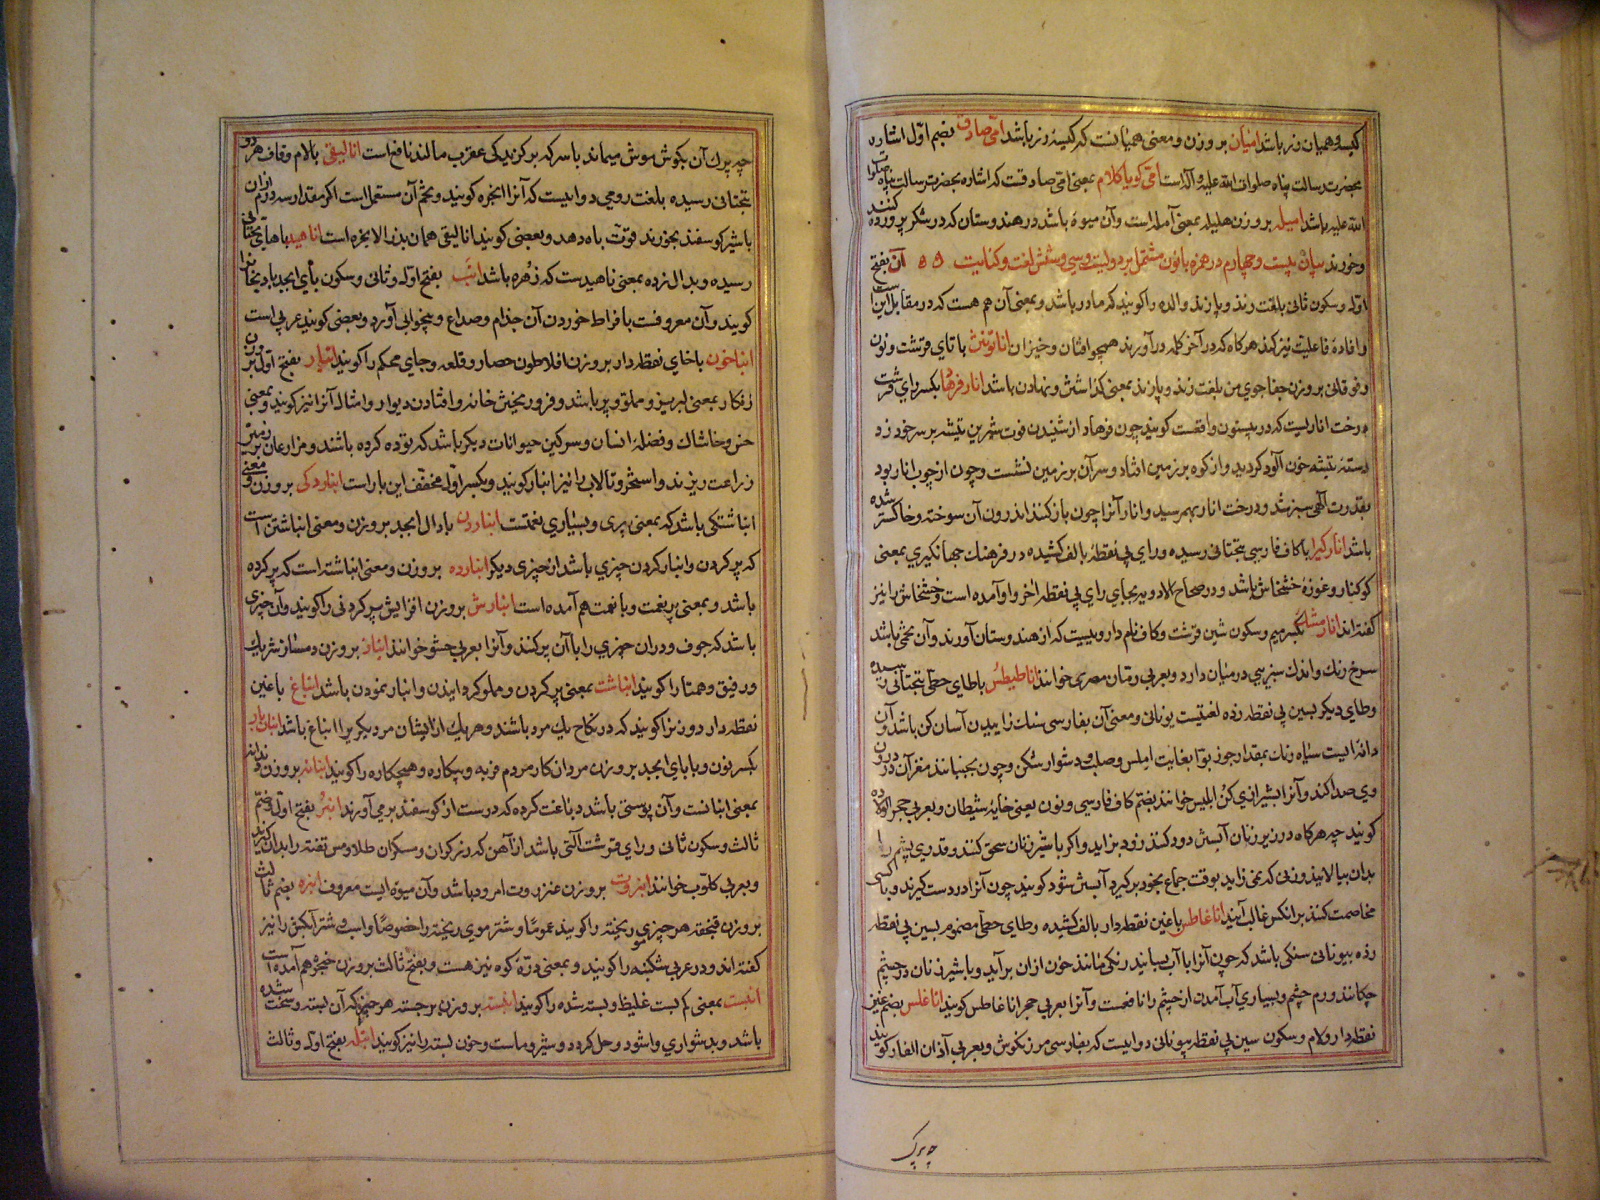 کیسه و همیان زر باشد امنیان بر وزن و معنی همیانست که کیسهٔ زر باشد امّی صادق بضم اوّل اشاره
بحضرت رسالت پناه صلوات الله علیه و آله است امّی گویا کلام بمعنی امّی صادقست که اشاره بحضرت رسالت پناه صلوات
الله علیه باشد امیله بر وزن هلیله بمعنی آمله است و آن میوهٔ باشد در هندوستان که در شکر پرورده کنند
و خورند بیان بیست و چهارم در همزه با نون مشتمل بر دویست و سی و شش لغت و کنایت ان بفتح
اول و سکون ثانی بلغت زند و پازند والده را گویند که مادر باشد و بمعنی آن هم هست که در مقابل این است
را افادهٔ فاعلیت نیز کند هرگاه که در آخر کلمه در آورند همچو افتان و خیزان اناتونتن با تای قرشت و نون
و فوقانی بر وزن جفاجوی من بلغت زند و پازند بمعنی گذاشتن و نهادن باشد انار فرهاد بکسر رای قرشت
درخت اناریست که در بیستون واقعست گویند چون فرهاد از شنیدن فوت شیرین تیشه بر سر خود زد
دستهٔ تیشه خون آلود گردید و از کوه بر زمین افتاد و سر آن بر زمین نشست و چون از چوب انار بود
بقدرت الهی سبز شد و درخت انار بهم رسید و انار آنرا چون باز کنند اندرون آن سوخته و خاکستر شده
باشد انارکیرا با کاف فارسی بتحتانی رسیده و رای بی نقطه بالف کشیده در فرهنگ جهانگیری بمعنی
کوکنار و غوزهٔ خشخاش باشد و در صحاح الادویه بجای رای بی نقطه آخر واو آمده است و خشخاش را نیز
گفته اند انار مشک بکسر میم و سکون شین قرشت و کاف نام داروییست که از هندوستان آورند و آن تخمی باشد
سرخ رنگ و اندک سبزیی در میان دارد و بعربی رمّان مصری خوانند اناطیطس با طای حطّی بتحتانی رسیده
و طای دیگر بسین بی نقطه زده لغتیست یونانی و معنی آن بفارسی سنگ زاییدن آسان کن باشد و آن
دانه ایست سیاه رنگ بمقدار جوز بوّا بغایت املس و صلب و دشوار شکن و چون بجنبانند مغز آن در درون
وی صدا کند و آنرا بشیرازی کن ابلیس خوانند بضم کاف فارسی و نون یعنی خایهٔ شیطان و بعربی حجر الولاده
گویند چه هرگاه در زیر زنان آبستن دود کنند زود بزاید و اگر با شیر زنان سحق کنند و قدری پشم را
بدان بیالایند و زنی که نمی زاید بوقت جماع بخود برگیرد آبستن شود گویند چون آنرا در دست گیرند و با کسی
مخاصمت کنند بر آنکس غالب آیند اناغاطس با غین نقطه دار بالف کشیده و طای حطّی مضموم بسین بی نقطه
زده بیونانی سنگی باشد که چون آنرا با آب بسایند رنگی مانند خون ازان برآید و با شیر زنان در چشم
چکانند ورم چشم و بسیاری آب آمدن از چشم را نافعست و آنرا بعربی حجر اناغاطس گویند اناغلس بضم غین
نقطه دار و لام و سکون سین بی نقطه بیونانی دواییست که بفارسی مرزنگوش و بعربی آذان الفار گویند
چه برک
چه برک آن بگوش موش میماند با سرکه بر گزندگی عقرب مالند نافع است انالیقی بالام و قاف هر دو
بتحتانی رسیده بلغت رومی دواییست که آنرا انجره گویند و تخم آن مستعمل است اگر مقدار سه درم ازان
با شیر گوسفند بخورند قوّت باه دهد و بعضی گویند انالیقی همان بذر الانجره است اناهید با های بتحتانی
رسیده و بدال زده بمعنی ناهیدست که زُهره باشد انَب بفتح اول و ثانی و سکون بای ابجد بادنجان را
گویند و آن معروفست بافراط خوردن آن جذام و صداع و بیخوابی آورد و بعضی گویند عربی است
انباخون با خای نقطه دار بر وزن افلاطون حصار و قلعه و جای محکم را گویند انبار بفتح اول بر وزن
زنکار بمعنی لبریز و مملو و پر باشد و فرو ریختن خانه و افتادن دیوار و امثال آنرا نیز گویند و بمعنی
خس و خاشاک و فضلهٔ انسان و سرگین حیوانات دیگر باشد که توده کرده باشند و مزارعان بر زمین
زراعت ریزند و استخر و تالاب را نیز انبار گویند و بکسر اول مخفّف این بار است انباردگی بر وزن و معنی
انباشتگی باشد که بمعنی پری و بسیاری نعمتست انباردن با دال ابجد بر وزن و معنی انباشتن است
که پر کردن و انبار کردن چیزی باشد از چیزی دیگر انبارده بر وزن و معنی انباشته است که پر کرده
باشد و بمعنی پر نعمت و با نعمت هم آمده است انبارش بر وزن افزایش پر کردنی را گویند و آن چیزی
باشد که جوف و دران چیزی را با آن پر کنند و آنرا بعربی حشو خوانند انباز بر وزن دمساز شریک
و رفیق و همتا را گویند انباشت بمعنی پر کردن و مملو گردانیدن و انبار نمودن باشد انباغ با غین
نقطه دار دو زن را گویند که در نکاح یک مرد باشند و هر یک از ایشان مر دیگریرا انباغ باشد انبان بار
بکسر نون و با بای ابجد بر وزن مردان کار مردم فربه و بیکاره و هیچکاره را گویند انبانه بر وزن دندانه
بمعنی انبانست و آن پوستی باشد دباغت کرده که درست از گوسفند برمی آورند انبُر بفتح اوّل و ضمّ
ثالث و سکون ثانی و رای قرشت آلتی باشد از آهن که زرگران و مسگران طلا و مس تفته را بدان گیرند
و بعربی کلّوب خوانند انبروت بر وزن عنزروت امرود باشد و آن میوه ایست معروف انبره بضم ثالث
بر وزن قنجغه هر چیز موی ریخته را گویند عموماً و شتر موی ریخته را خصوصاً و اسب و شتر آبکش را نیز
گفته اند و در عربی شکنبه را گویند و بمعنی درّهٔ کوه نیز هست و بفتح ثالث بر وزن حنجره هم آمده است
انبست بمعنی کم بست غلیظ و بسته شده را گویند انبسته بر وزن برجسته هر چیز که آن بسته و سخت شده
باشد و بدشواری وا شود و حل گردد و شیر و ماست و خون بسته را نیز گویند انبله بفتح اول و ثالث